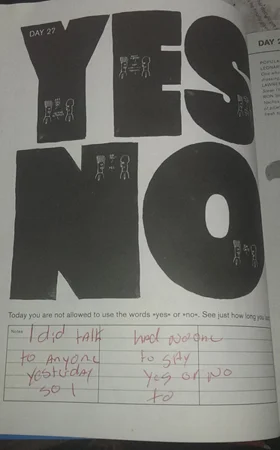 DAY 27
YES
NO
Today you are not allowed to use the words »yes« or »no«. See just how long you
Notes
I did talk
to anyone
yesterday
so I
had no one
to say
yes or no
to
DAY